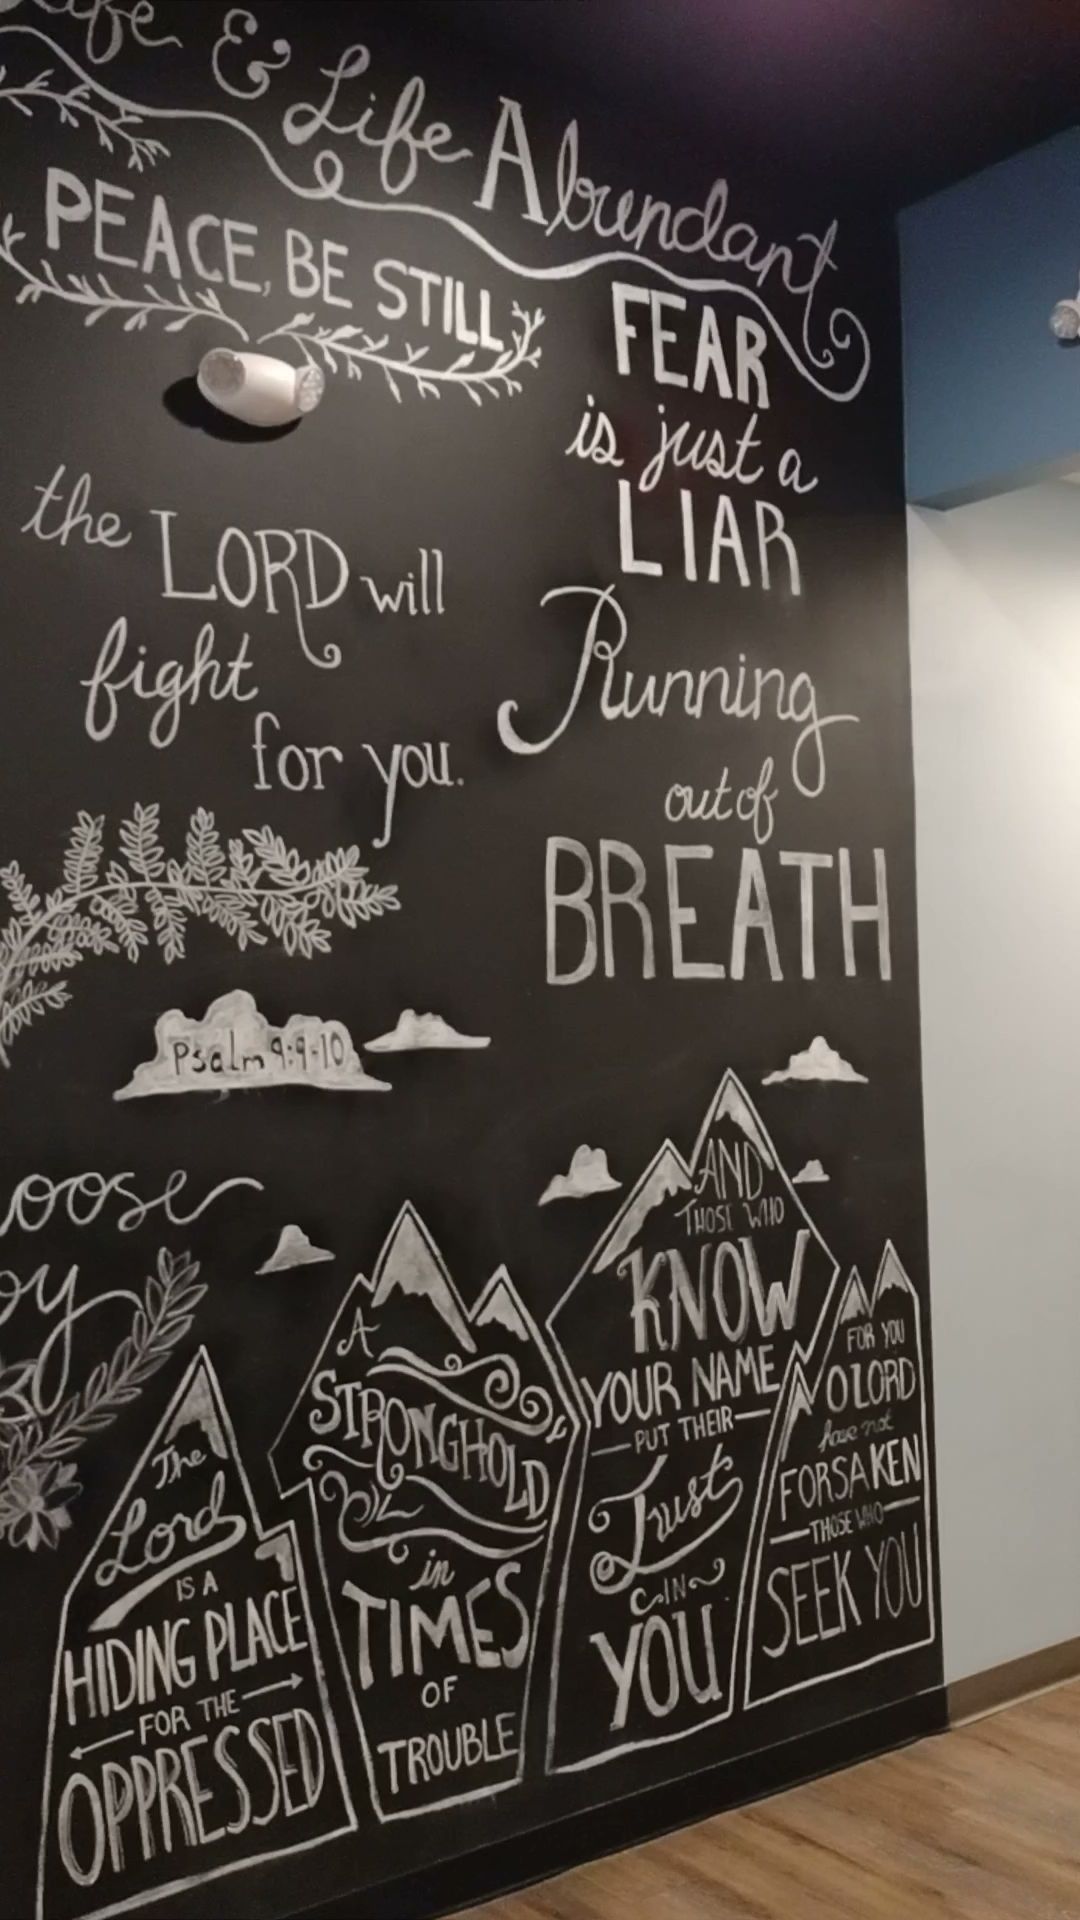 & Life Abundant
PEACE, BE STILL
FEAR
is just a
LIAR
Running
out of
BREATH
the LORD will
fight
for you.
Psalm 9:9-10
The
Lord
IS A
HIDING PLACE
FOR THE
OPPRESSED
A
STRONGHOLD
in
TIMES
OF
TROUBLE
AND
THOSE WHO
KNOW
YOUR NAME
PUT THEIR
Trust
IN
YOU
FOR YOU
O LORD
have not
FORSAKEN
THOSE WHO
SEEK YOU